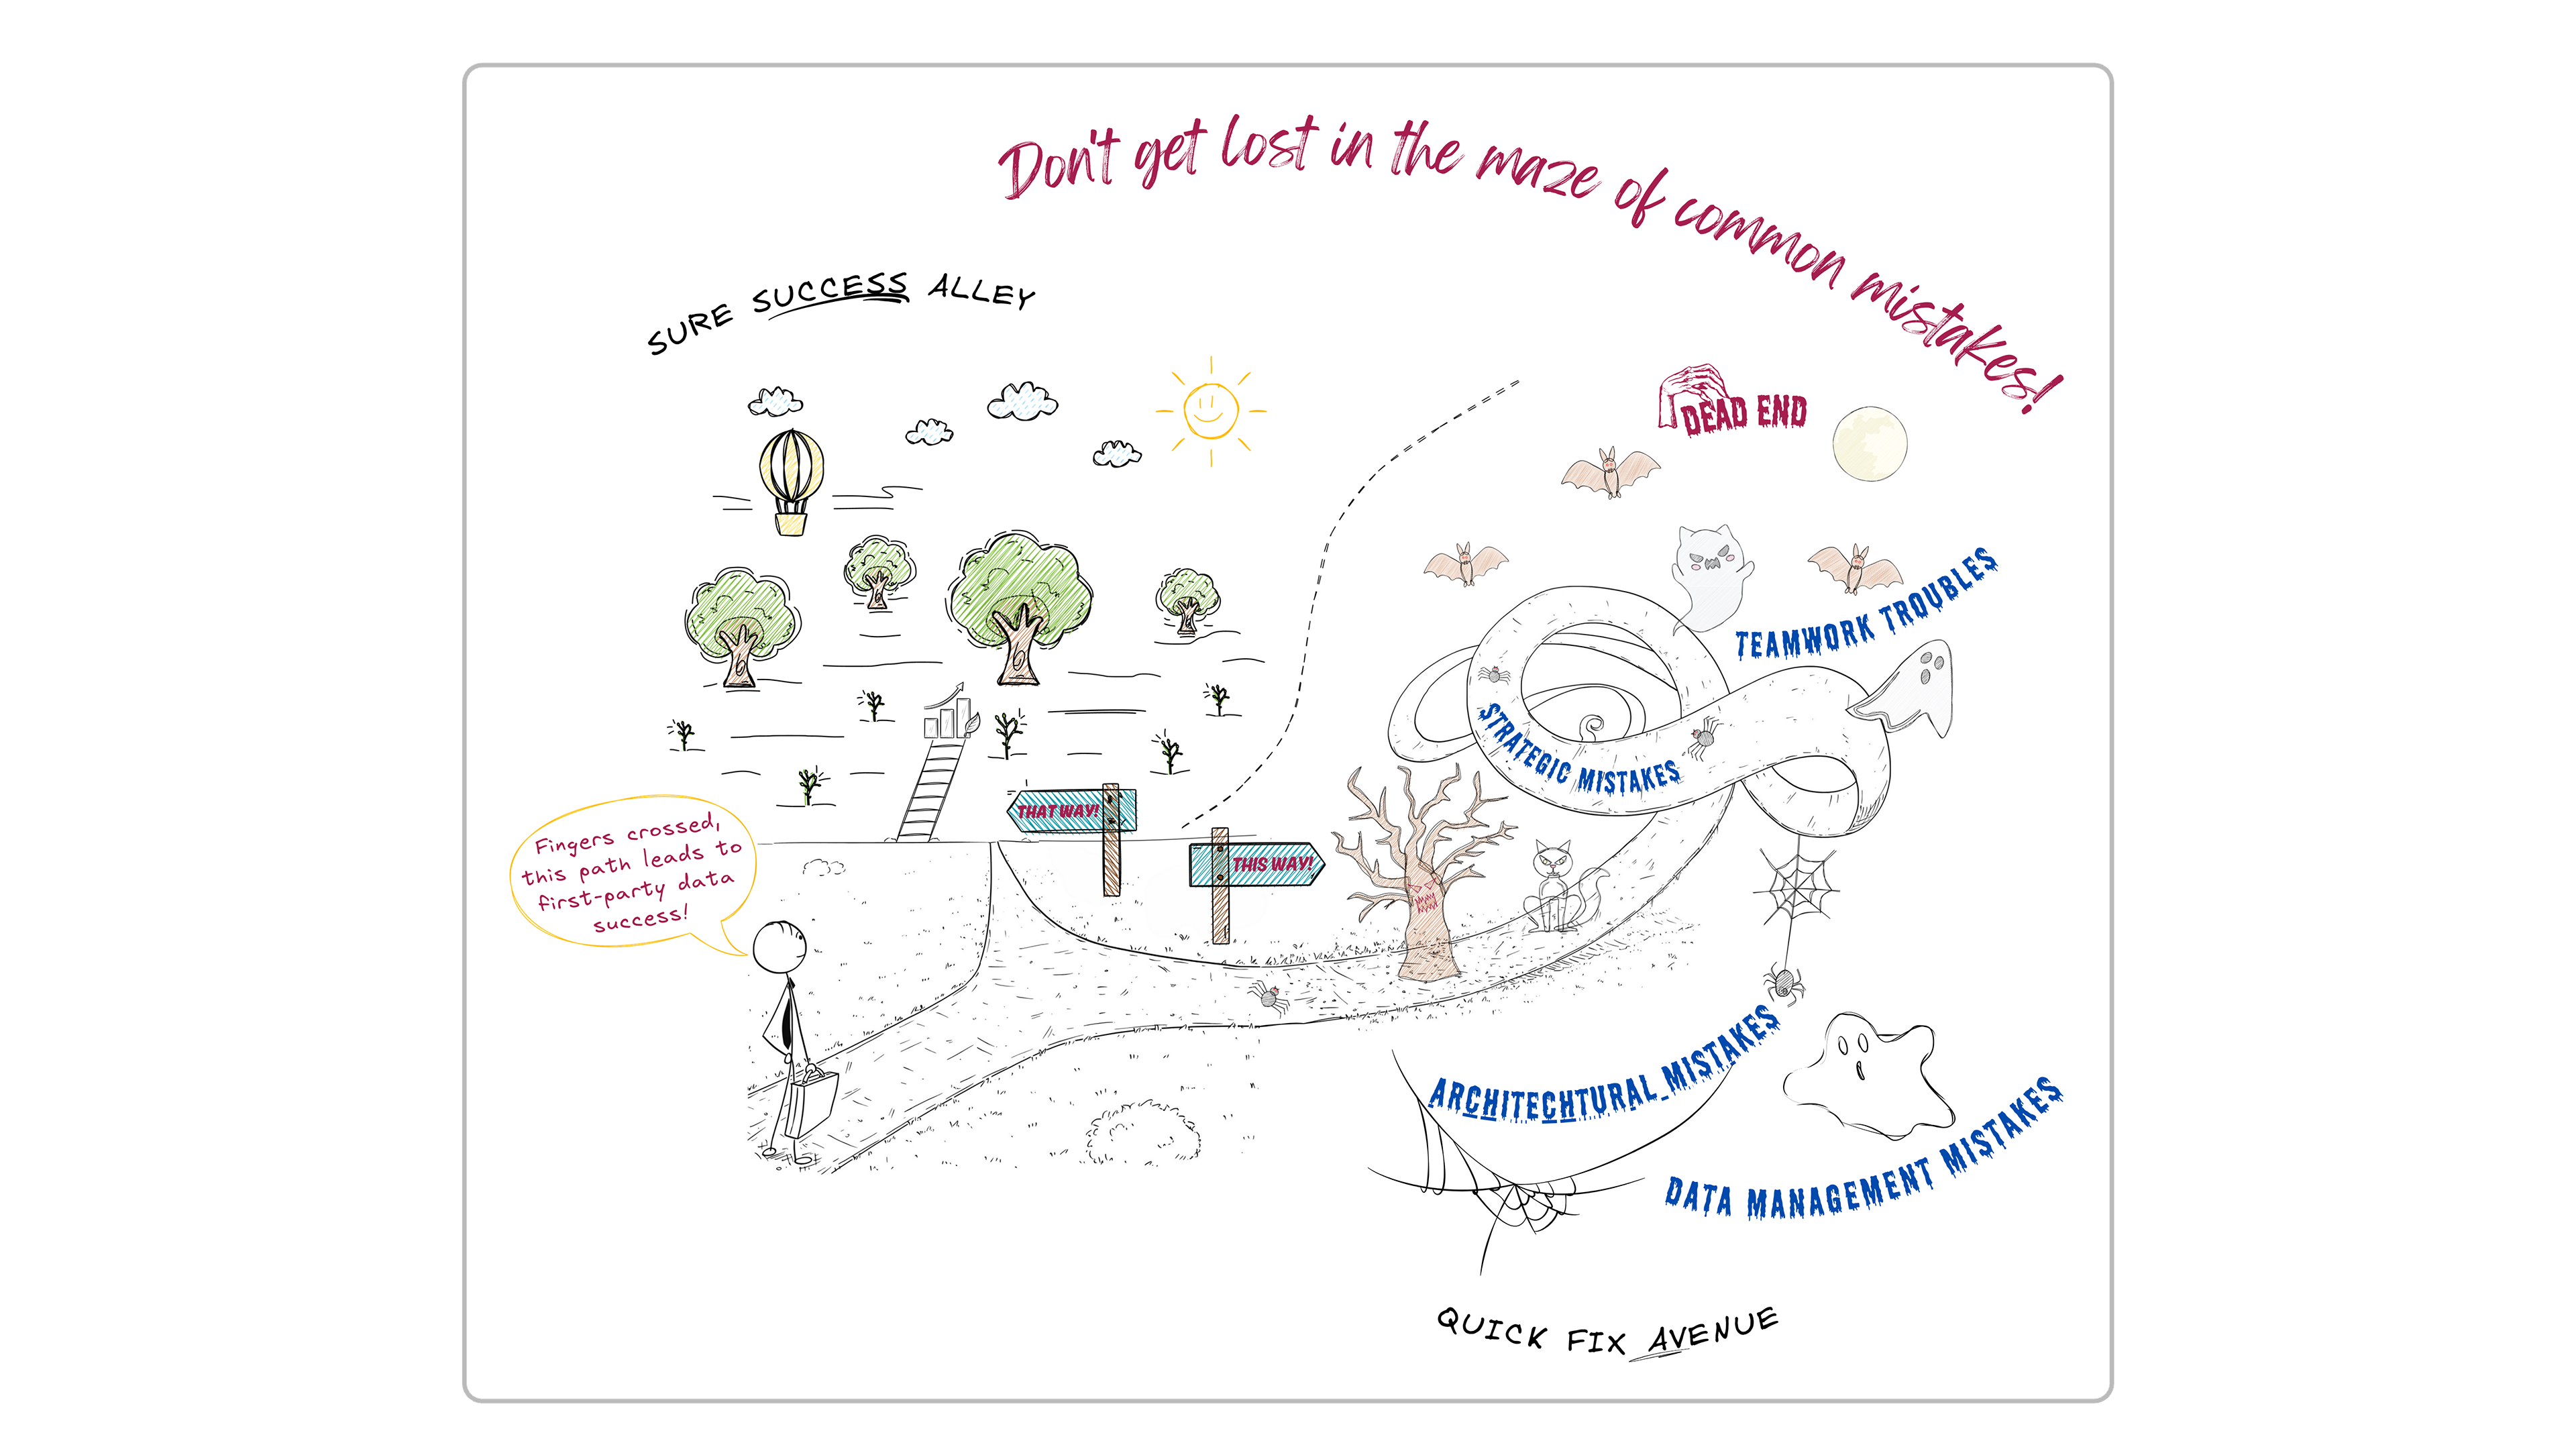 Don't get lost in the maze of common mistakes!
SURE SUCCESS ALLEY
DEAD END
TEAMWORK TROUBLES
STRATEGIC MISTAKES
THAT WAY!
THIS WAY!
Fingers crossed,
this path leads to
first-party data
success!
ARCHITECHTURAL MISTAKES
DATA MANAGEMENT MISTAKES
QUICK FIX AVENUE